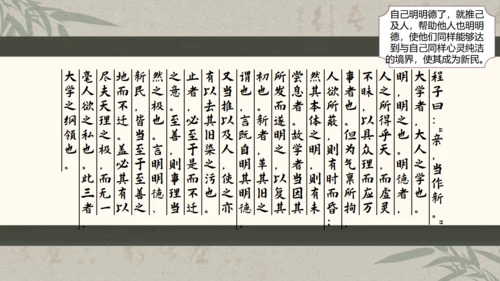 自己明明德了，就推己
及人，帮助他人也明明
德，使他们同样能够达
到与自己同样心灵纯洁
的境界，使其成为新民。
程子曰："亲，当作新。"
大学者，大人之学也。
明，明之也。明德者，
人之所得乎天，而虚灵
不昧，以具众理而应万
事者也。但为气禀所拘，
人欲所蔽，则有时而昏；
然其本体之明，则有未
尝息者。故学者当因其
所发而遂明之，以复其
初也。新者，革其旧之
谓也，言既自明其明德，
又当推以及人，使之亦
有以去其旧染之污也。
止者，必至于是而不迁
之意。至善，则事理当
然之极也。言明明德、
新民，皆当至于至善之
地而不迁。盖必其有以
尽夫天理之极，而无一
毫人欲之私也。此三者，
大学之纲领也。